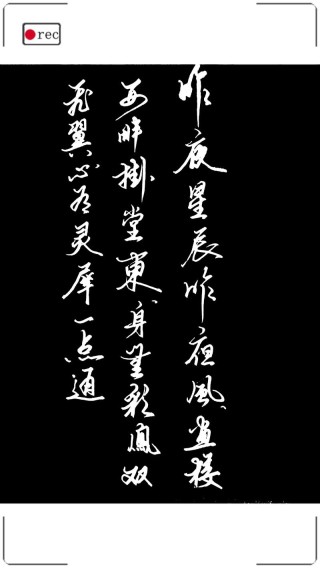 rec
昨夜星辰昨夜風畫楼
西畔掛堂東身無彩鳳双
飛翼心有灵犀一点通